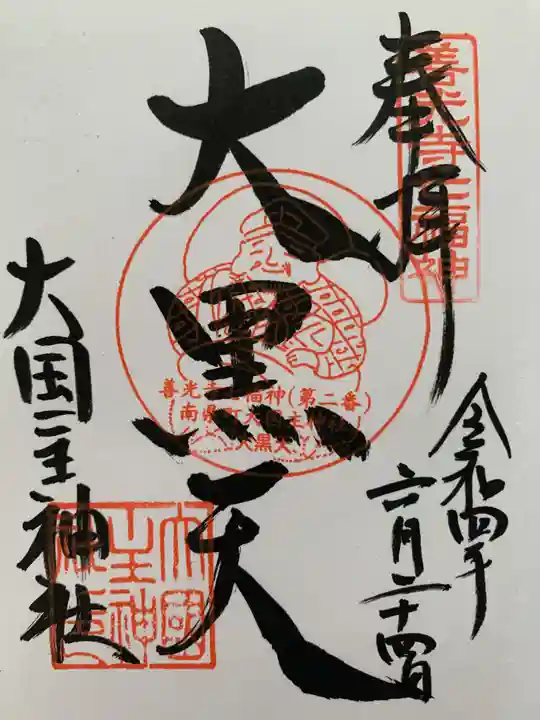 奉拝
善光寺七福神
令和四年
六月二十四日
大黒天
善光寺七福神(第二番)
南県町大国主神社
大黒天
大国主神社
大國
主神
社